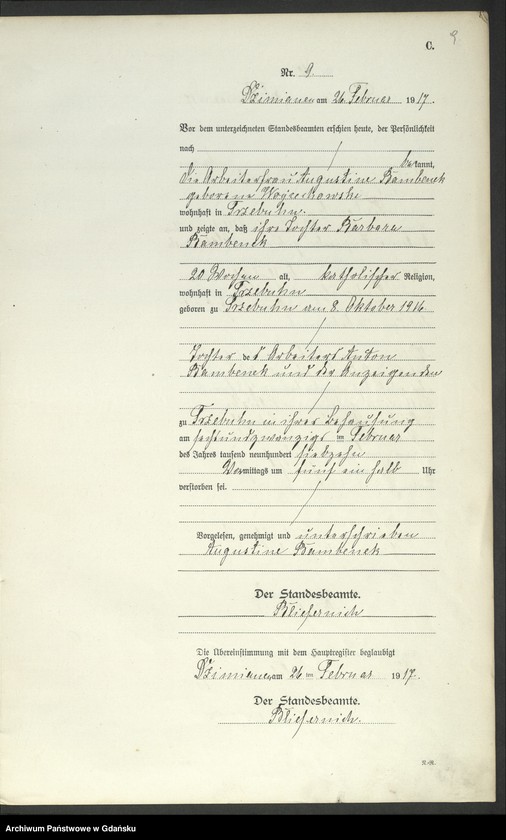 9
C.
Nr. 9.
Dzimianen am 26. Februar 1917.
Vor dem unterzeichneten Standesbeamten erschien heute, der Persönlichkeit
nach
bekannt,
die Arbeiterfrau Augustine Bambenek
geborene
wohnhaft in Trzebuhn.
und zeigte an, daß ihre Tochter Barbara
Bambenek
20 Wochen alt, katholischer Religion,
wohnhaft in Trzebuhn
geboren zu Trzebuhn am 8. Oktober 1916
Tochter des Arbeiters Anton
Bambenek und der Anzeigenden
zu Trzebuhn in ihrer Behausung
am sechsundzwanzigs ten Februar
des Jahres tausend neunhundert siebzehn
Vormittags um fünf ein halb Uhr
verstorben sei.
Vorgelesen, genehmigt und unterschrieben
Augustine Bambenek
Der Standesbeamte.
Bliefernich
Die Übereinstimmung mit dem Hauptregister beglaubigt
Dzimianen am 26 ten Februar 1917.
Der Standesbeamte.
Bliefernich.
Archiwum Państwowe w Gdańsku